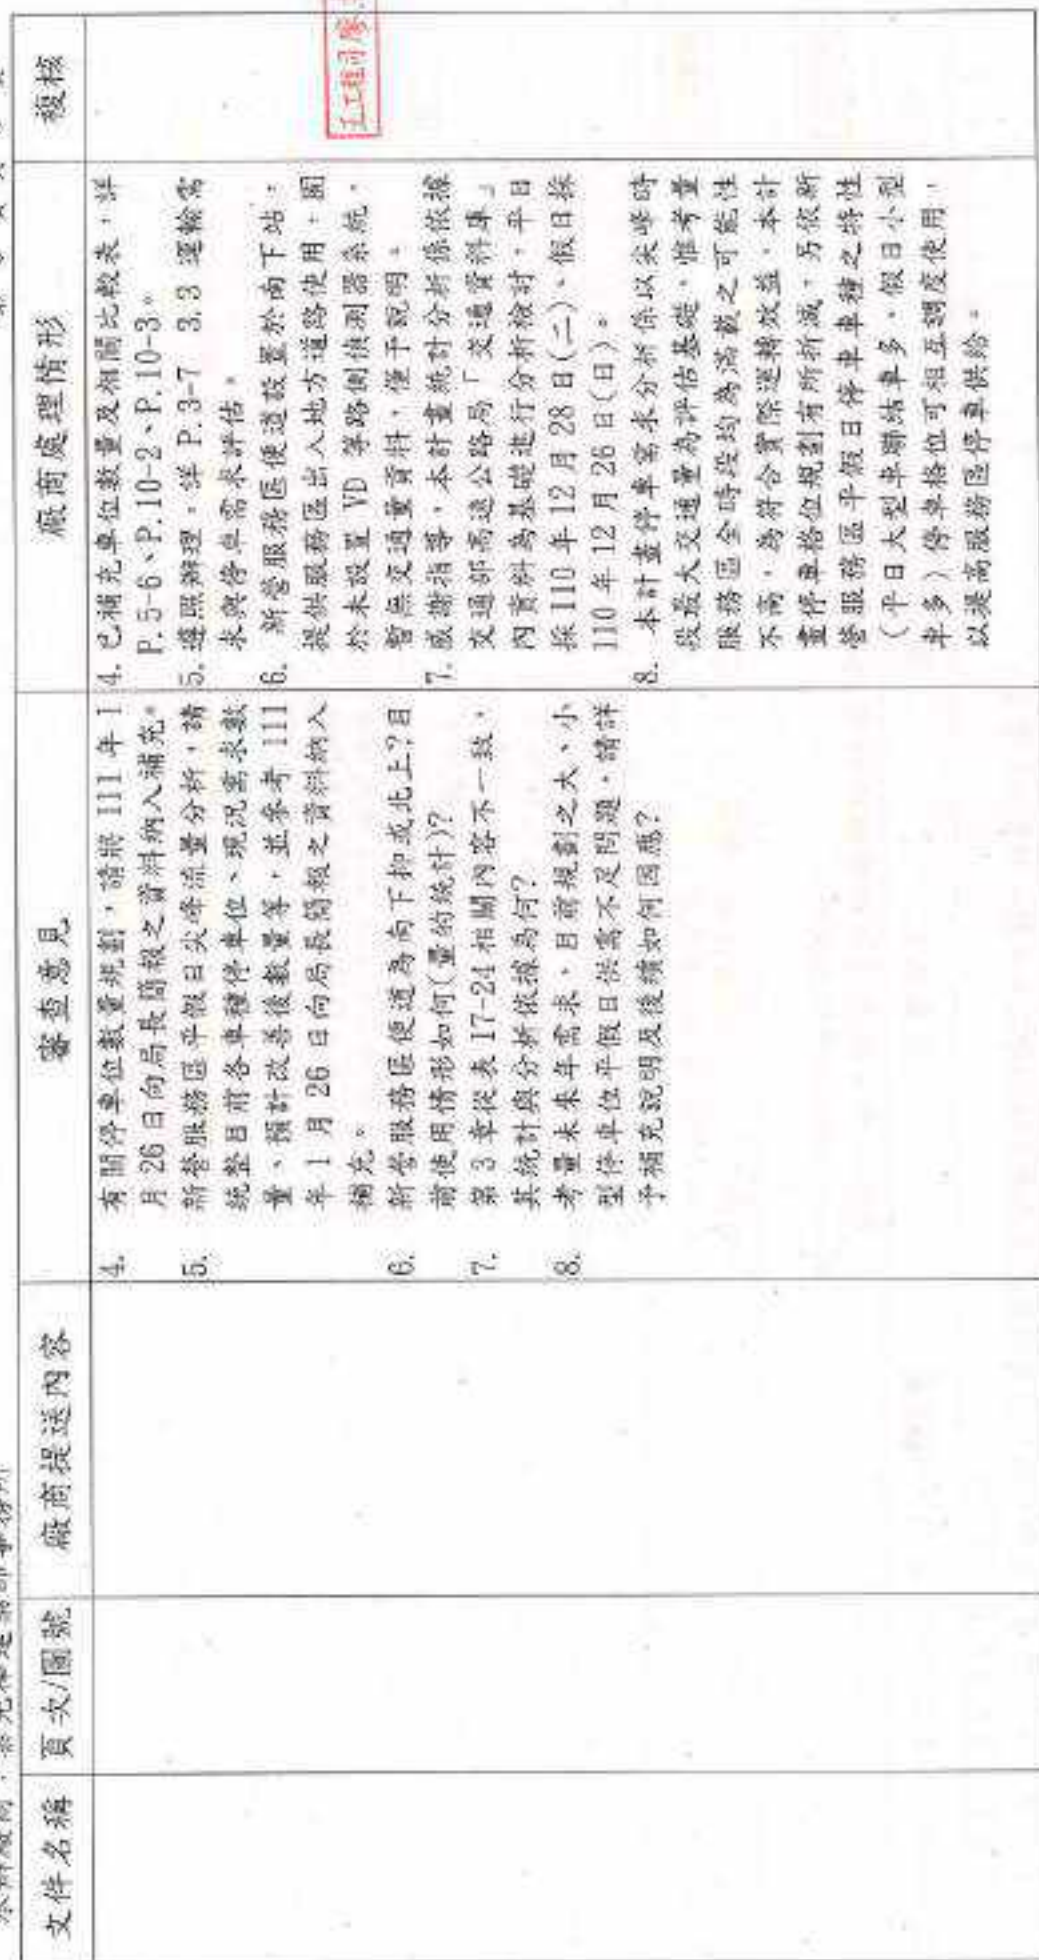 承辦廠商：
文件名稱
頁次/圖號
廠商提送內容
審查意見
廠商處理情形
複核
4. 有關停車位數量規劃，請將 111 年 1
月 26 日向局長簡報之資料納入補充。
5. 新營服務區平假日尖峰流量分析，請
統整目前各車種停車位、現況需求數
量、預計改善後數量等，並參考 111
年 1 月 26 日向局長簡報之資料納入
補充。
6. 新營服務區便道為向下抑或北上?目
前使用情形如何(量的統計)?
7. 第 3 章從表 17-24 相關內容不一致，
其統計與分析依據為何?
8. 考量未來年需求，目前規劃之大、小
型停車位平假日供需不足問題，請詳
予補充說明及後續如何因應?
4. 已補充車位數量及相關比較表，詳
P.5-6、P.10-2、P.10-3。
5. 遵照辦理，詳 P.3-7 3.3 運輸需
求與停車需求評估。
6. 新營服務區便道設置於南下站，
提供服務區出入地方道路使用，囿
於未設置 VD 等路側偵測器系統，
暫無交通量資料，僅予說明。
7. 感謝指導，本計畫統計分析係依據
交通部高速公路局「交通資料庫」
內資料為基礎進行分析檢討，平日
採 110 年 12 月 28 日(二)、假日採
110 年 12 月 26 日(日)。
8. 本計畫停車需求分析係以尖峰時
段最大交通量為評估基礎，惟考量
服務區全時段均為滿載之可能性
不高，為符合實際運轉效益，本計
畫停車格位規劃有所折減，另依新
營服務區平假日停車車種之特性
(平日大型車聯結車多，假日小型
車多)停車格位可相互調度使用，
以提高服務區停車供給。